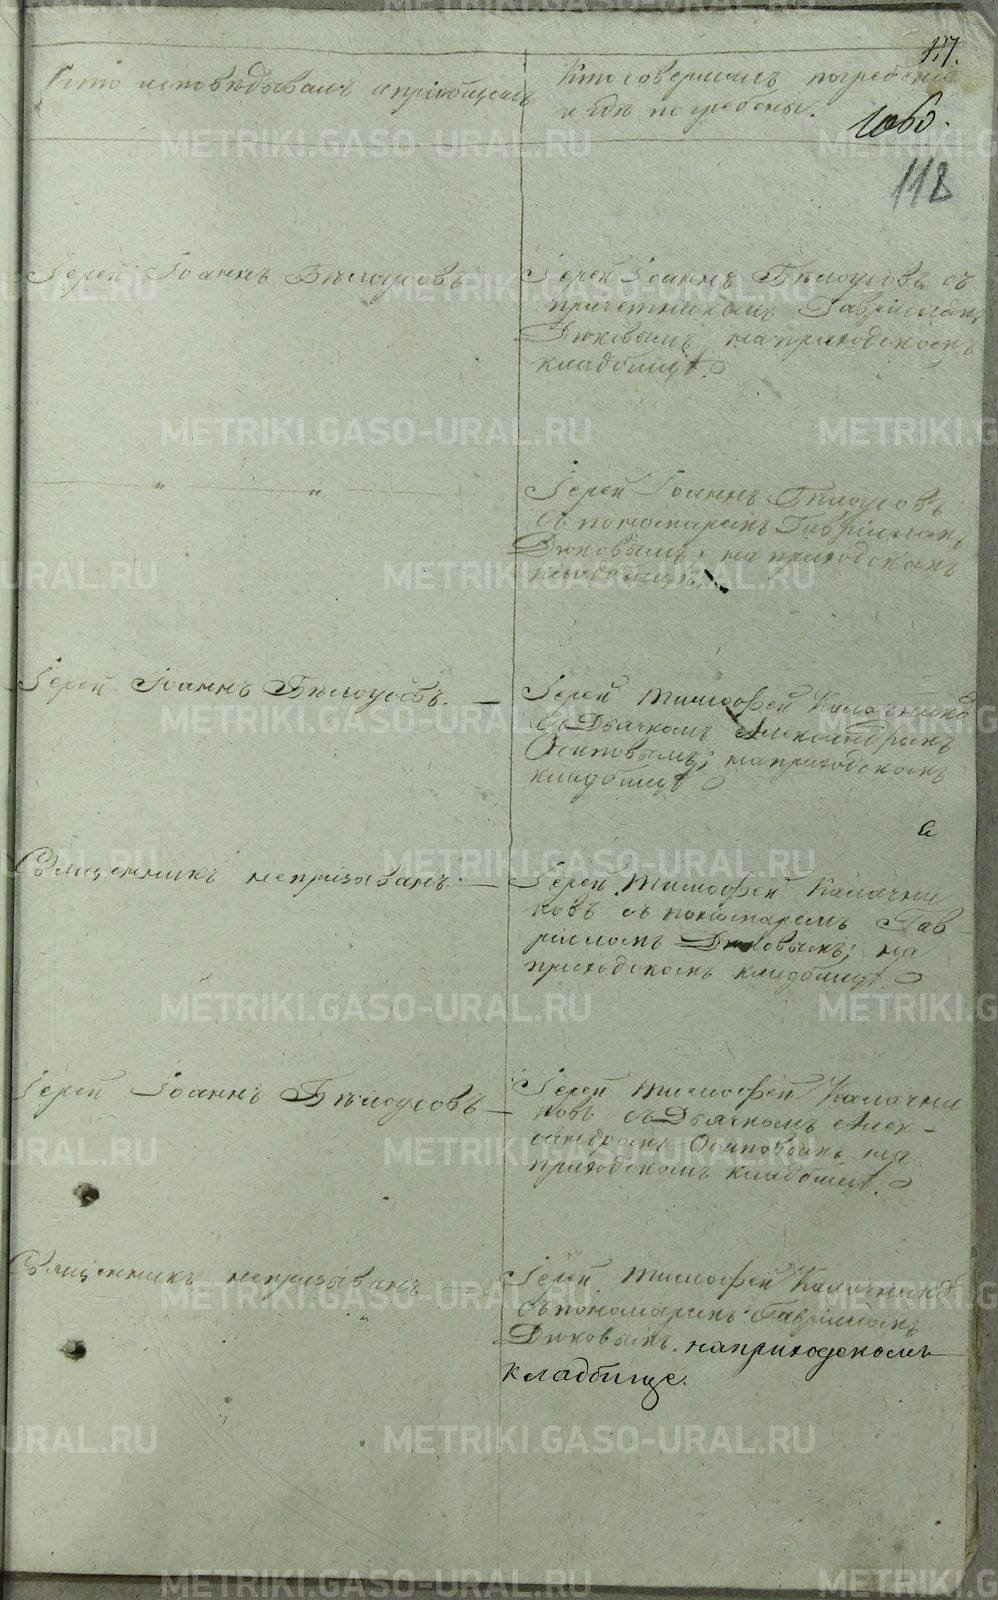 117.
Кто исповѣдывалъ и пріобщалъ
Кто совершалъ погребеніе
и гдѣ погребены.
1060.
118
Іерей Іоаннъ Бѣлоусовъ
Іерей Іоаннъ Бѣлоусовъ съ
причетникомъ Гавріиломъ
Дюковымъ на приходскомъ
кладбищѣ
" "
Іерей Іоаннъ Бѣлоусовъ
съ пономаремъ Гавріиломъ
Дюковымъ, на приходскомъ
кладбищѣ.
Іерей Іоаннъ Бѣлоусовъ. —
Іерей Тимофей Калачниковъ
съ Дьячкомъ Александромъ
Осиповымъ; на приходскомъ
кладбищѣ
Священникъ непризыванъ. —
Іерей Тимофей Калачни
ковъ съ пономаремъ Гав
ріиломъ Дюковымъ; на
приходскомъ кладбищѣ
Іерей Іоаннъ Бѣлоусовъ —
Іерей Тимофей Калачни
ковъ съ Дьячкомъ Алек-
сандромъ Осиповымъ на
приходскомъ кладбищѣ.
Священникъ непризыванъ —
Іерей Тимофей Калачниковъ
съ пономаремъ Гавріиломъ
Дюковымъ. на приходскомъ
кладбище.
METRIKI.GASO-URAL.RU